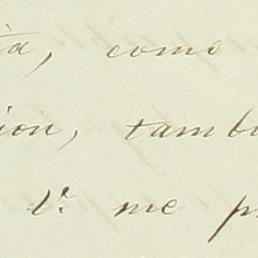 ta, como
ion, tamb
V. me p